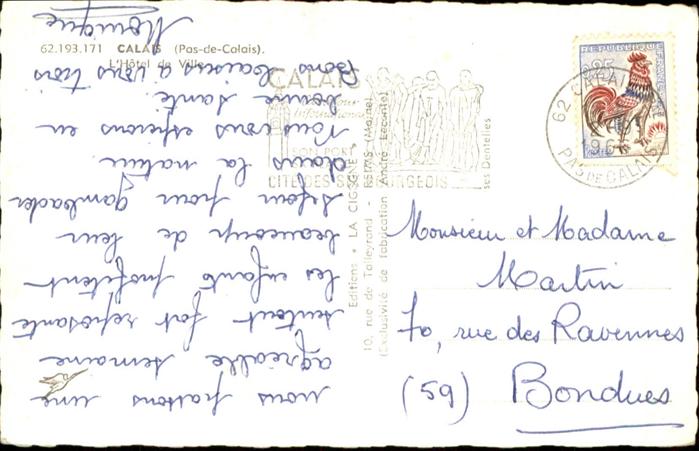 62.193.171 CALAIS (Pas-de-Calais).
L'Hôtel de Ville
nous passons une
agréable semaine
surtout fort reposante
les enfants profitent
beaucoup de leur
séjour pour gambader
dans la nature.
Nous vous espérons en
bonne santé.
Bons baisers à vous trois
Monique
CALAIS
SON PORT
CITE DES BOURGEOIS
Editions "LA CIGOGNE"
10, rue de Talleyrand - REIMS (Marne)
(Exclusivité de fabrication André Leconte)
ses Dentelles
REPUBLIQUE FRANÇAISE
0,25
62 CALAIS
PAS DE CALAIS
Monsieur et Madame
Martin
70, rue des Ravennes
(59) Bondues